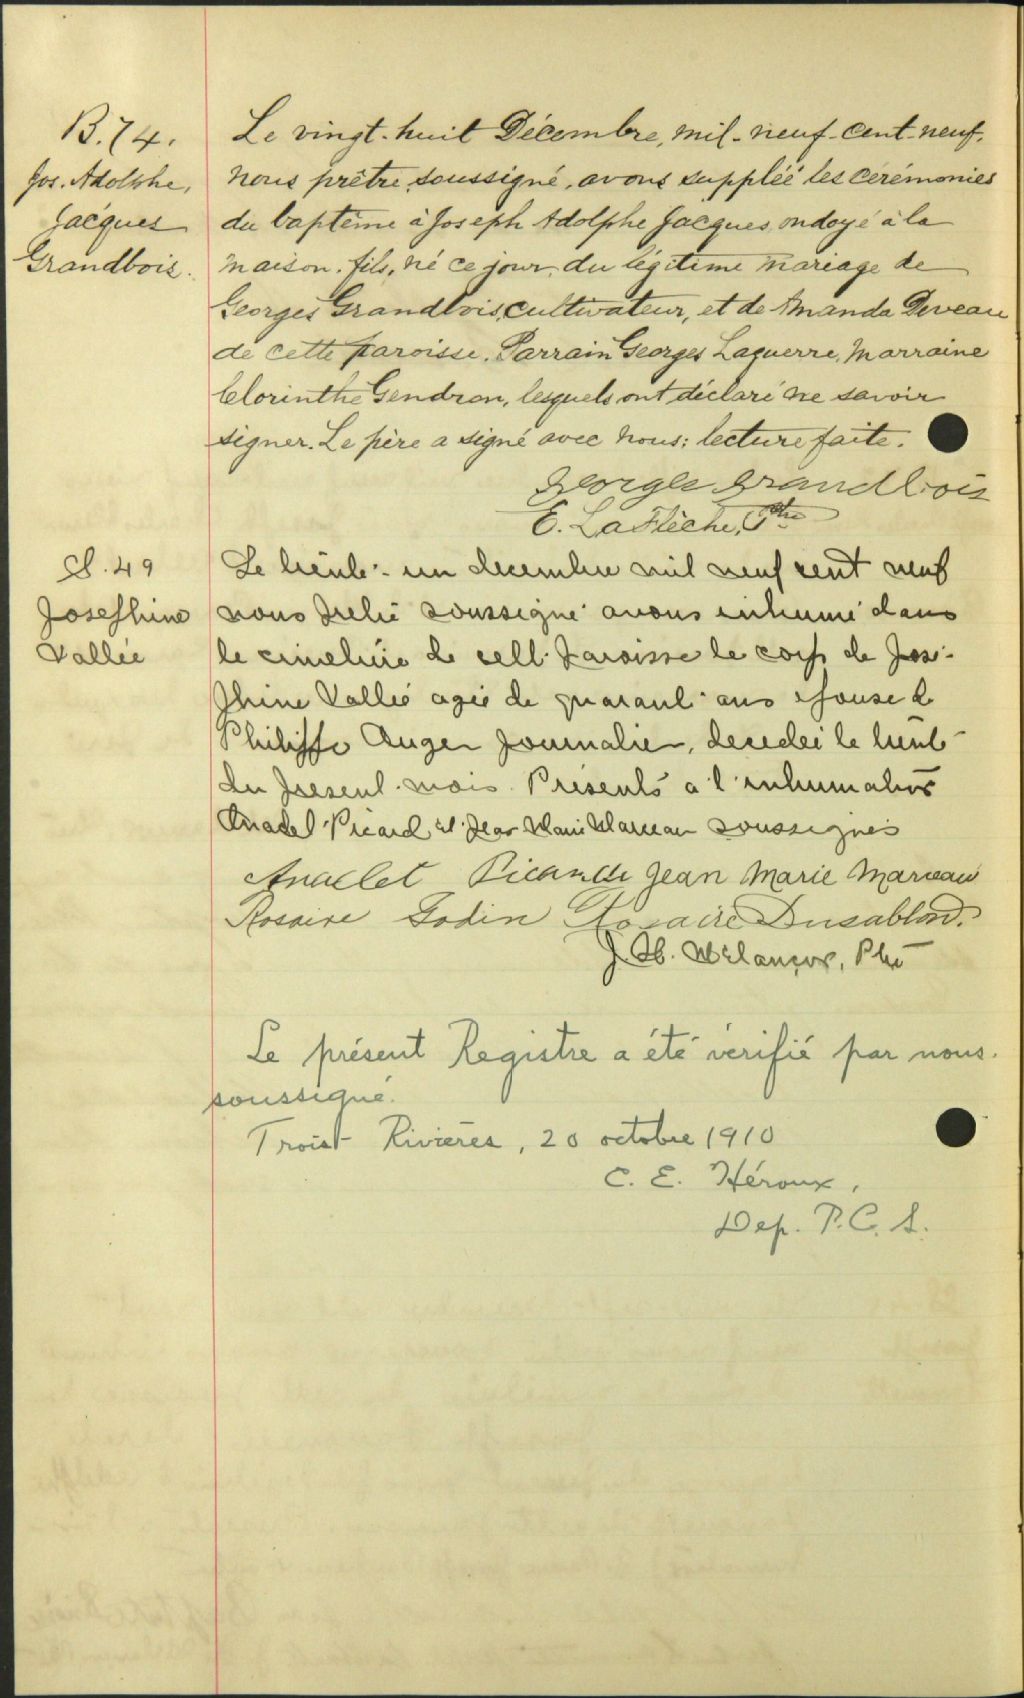 B.74.
Jos. Adolphe,
Jacques
Grandbois.
Le vingt-huit Décembre, mil-neuf-cent-neuf,
nous prêtre soussigné, avons suppléé les cérémonies
du baptême à Joseph Adolphe Jacques, ondoyé à la
maison, fils, né ce jour, du légitime mariage de
Georges Grandbois, cultivateur, et de Amanda Deveau
de cette paroisse. Parrain Georges Laguerre, Marraine
Clorinthe Gendron, lesquels ont déclaré ne savoir
signer. Le père a signé avec nous: lecture faite.
George Grandbois
E. LaFlèche, Ptre
S. 49
Josephine
Vallée
Le trente-un decembre mil neuf cent neuf
nous Prêtre soussigné avons inhumé dans
le cimetière de cette Paroisse le corps de José-
phine Vallée agée de quarante ans épouse de
Philippe Auger journalier, decedée le trente
du present mois. Présents à l'inhumation
Anaclet Picard et Jean Marie Marceau soussignés
Anaclet Picard Jean Marie Marceau
Rosaire Godin Rosaire Dusablon.
J. H. Mélançon, Ptre
Le présent Registre a été vérifié par nous
soussigné.
Trois-Rivières, 20 octobre 1910
C. E. Héroux,
Dep. P.C.S.